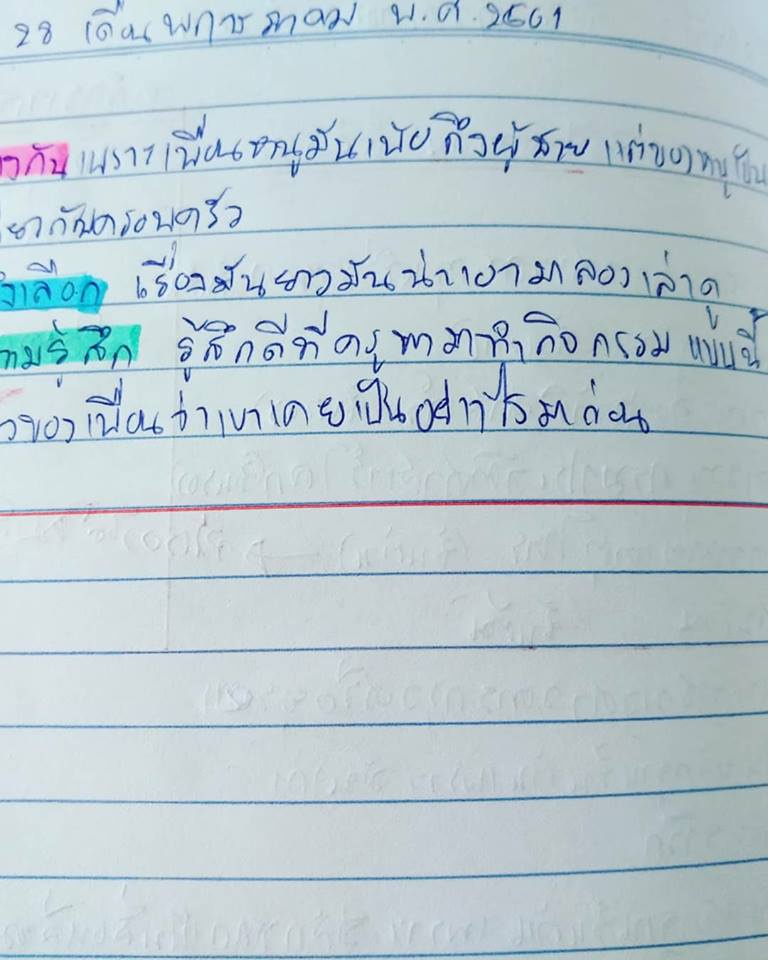 28 เดือนพฤษภาคม พ.ศ.2561
วกัน เพราะเพื่อนหนูมันเขียถึงผู้ชาย แต่ของหนูเป็น
ยวกับครอบครัว
งเลือก เรื่องมันยาวมันน่าเอามาลองเล่าดู
วามรู้สึก รู้สึกดีที่ครูพามาทำกิจกรรมแบบนี้
วของเพื่อนว่าเขาเคยเป็นอย่างไรมาก่อน